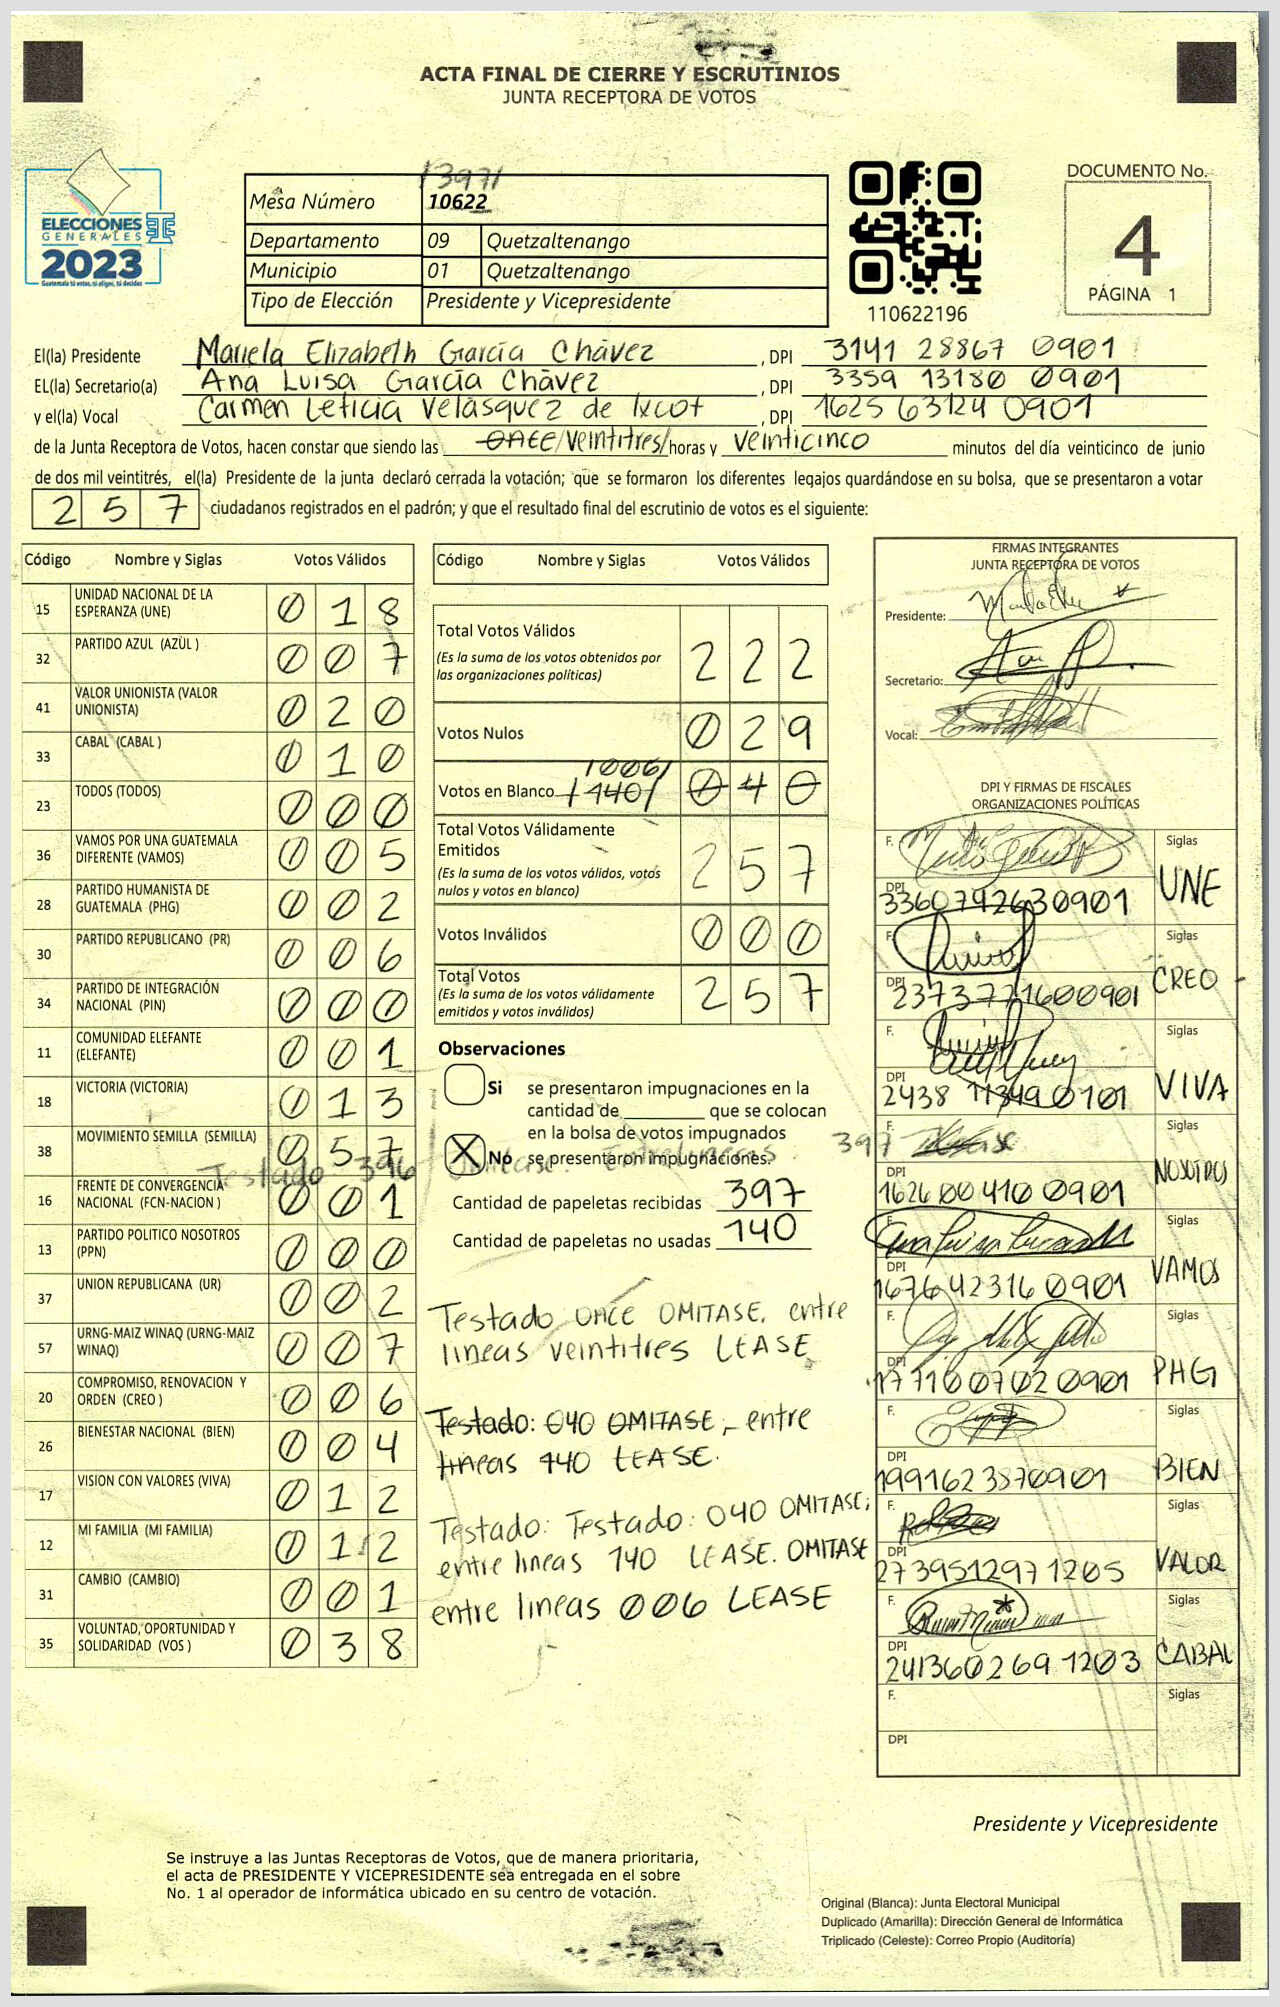 ACTA FINAL DE CIERRE Y ESCRUTINIOS
JUNTA RECEPTORA DE VOTOS
/397/
Mesa Número 10622
Departamento 09 Quetzaltenango
Municipio 01 Quetzaltenango
Tipo de Elección Presidente y Vicepresidente
ELECCIONES
GENERALES
2023
Guatemala tú votas, tú eliges, tú decides
110622196
DOCUMENTO No.
4
PÁGINA 1
El(la) Presidente Mariela Elizabeth García Chávez , DPI 3141 28867 0901
EL(la) Secretario(a) Ana Luisa García Chávez , DPI 3359 13180 0901
y el(la) Vocal Carmen Leticia Velásquez de Ixcot , DPI 1625 63124 0901
de la Junta Receptora de Votos, hacen constar que siendo las once/veintitres/ horas y veinticinco minutos del día veinticinco de junio
de dos mil veintitrés, el(la) Presidente de la junta declaró cerrada la votación; que se formaron los diferentes legajos guardándose en su bolsa, que se presentaron a votar
257 ciudadanos registrados en el padrón; y que el resultado final del escrutinio de votos es el siguiente:
Código Nombre y Siglas Votos Válidos
15 UNIDAD NACIONAL DE LA ESPERANZA (UNE) 018
32 PARTIDO AZUL (AZÙL ) 007
41 VALOR UNIONISTA (VALOR UNIONISTA) 020
33 CABAL (CABAL ) 010
23 TODOS (TODOS) 000
36 VAMOS POR UNA GUATEMALA DIFERENTE (VAMOS) 005
28 PARTIDO HUMANISTA DE GUATEMALA (PHG) 002
30 PARTIDO REPUBLICANO (PR) 006
34 PARTIDO DE INTEGRACIÓN NACIONAL (PIN) 000
11 COMUNIDAD ELEFANTE (ELEFANTE) 001
18 VICTORIA (VICTORIA) 013
38 MOVIMIENTO SEMILLA (SEMILLA) 057
Testado 396 Omitase. Entrelineas 397 Lease
16 FRENTE DE CONVERGENCIA NACIONAL (FCN-NACION ) 001
13 PARTIDO POLITICO NOSOTROS (PPN) 000
37 UNION REPUBLICANA (UR) 002
57 URNG-MAIZ WINAQ (URNG-MAIZ WINAQ) 007
20 COMPROMISO, RENOVACION Y ORDEN (CREO ) 006
26 BIENESTAR NACIONAL (BIEN) 004
17 VISION CON VALORES (VIVA) 012
12 MI FAMILIA (MI FAMILIA) 012
31 CAMBIO (CAMBIO) 001
35 VOLUNTAD, OPORTUNIDAD Y SOLIDARIDAD (VOS ) 038
Código Nombre y Siglas Votos Válidos
Total Votos Válidos 222
(Es la suma de los votos obtenidos por
las organizaciones políticas)
Votos Nulos 029
/006/
Votos en Blanco /140/ 040
Total Votos Válidamente
Emitidos 257
(Es la suma de los votos válidos, votos
nulos y votos en blanco)
Votos Inválidos 000
Total Votos 257
(Es la suma de los votos válidamente
emitidos y votos inválidos)
Observaciones
Si se presentaron impugnaciones en la
cantidad de ________ que se colocan
en la bolsa de votos impugnados
X No se presentaron impugnaciones.
Cantidad de papeletas recibidas 397
Cantidad de papeletas no usadas 140
Testado ONCE OMITASE. entre
lineas veintitres LEASE
Testado: 040 OMITASE, entre
lineas 140 LEASE.
Testado: Testado: 040 OMITASE;
entre lineas 140 LEASE. OMITASE
entre lineas 006 LEASE
FIRMAS INTEGRANTES
JUNTA RECEPTORA DE VOTOS
Presidente:
Secretario:
Vocal:
DPI Y FIRMAS DE FISCALES
ORGANIZACIONES POLÍTICAS
F. Siglas
DPI 3360792630901 UNE
F. Siglas
DPI 2373771600901 CREO
F. Siglas
DPI 2438 11349 0101 VIVA
F. Siglas
DPI 1626 00410 0901 NOSOTROS
F. Siglas
DPI 1676423160901 VAMOS
F. Siglas
DPI 1771007020901 PHG
F. Siglas
DPI 1991623870901 BIEN
F. Siglas
DPI 2739512971205 VALOR
F. Siglas
DPI 2413602691203 CABAL
F. Siglas
DPI
Presidente y Vicepresidente
Se instruye a las Juntas Receptoras de Votos, que de manera prioritaria,
el acta de PRESIDENTE Y VICEPRESIDENTE sea entregada en el sobre
No. 1 al operador de informática ubicado en su centro de votación.
Original (Blanca): Junta Electoral Municipal
Duplicado (Amarilla): Dirección General de Informática
Triplicado (Celeste): Correo Propio (Auditoría)